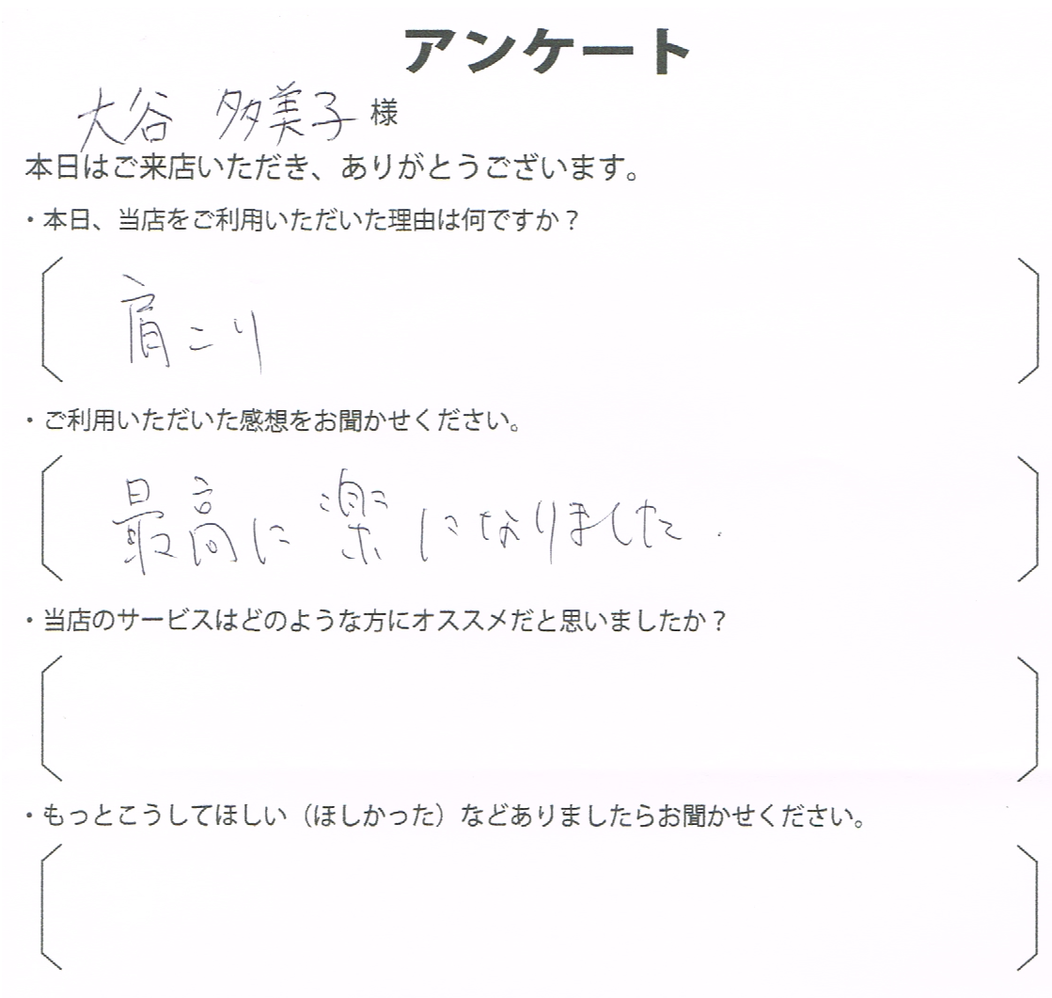 アンケート
大谷 多美子 様
本日はご来店いただき、ありがとうございます。
・本日、当店をご利用いただいた理由は何ですか？
肩こり
・ご利用いただいた感想をお聞かせください。
最高に楽になりました.
・当店のサービスはどのような方にオススメだと思いましたか？
・もっとこうしてほしい（ほしかった）などありましたらお聞かせください。